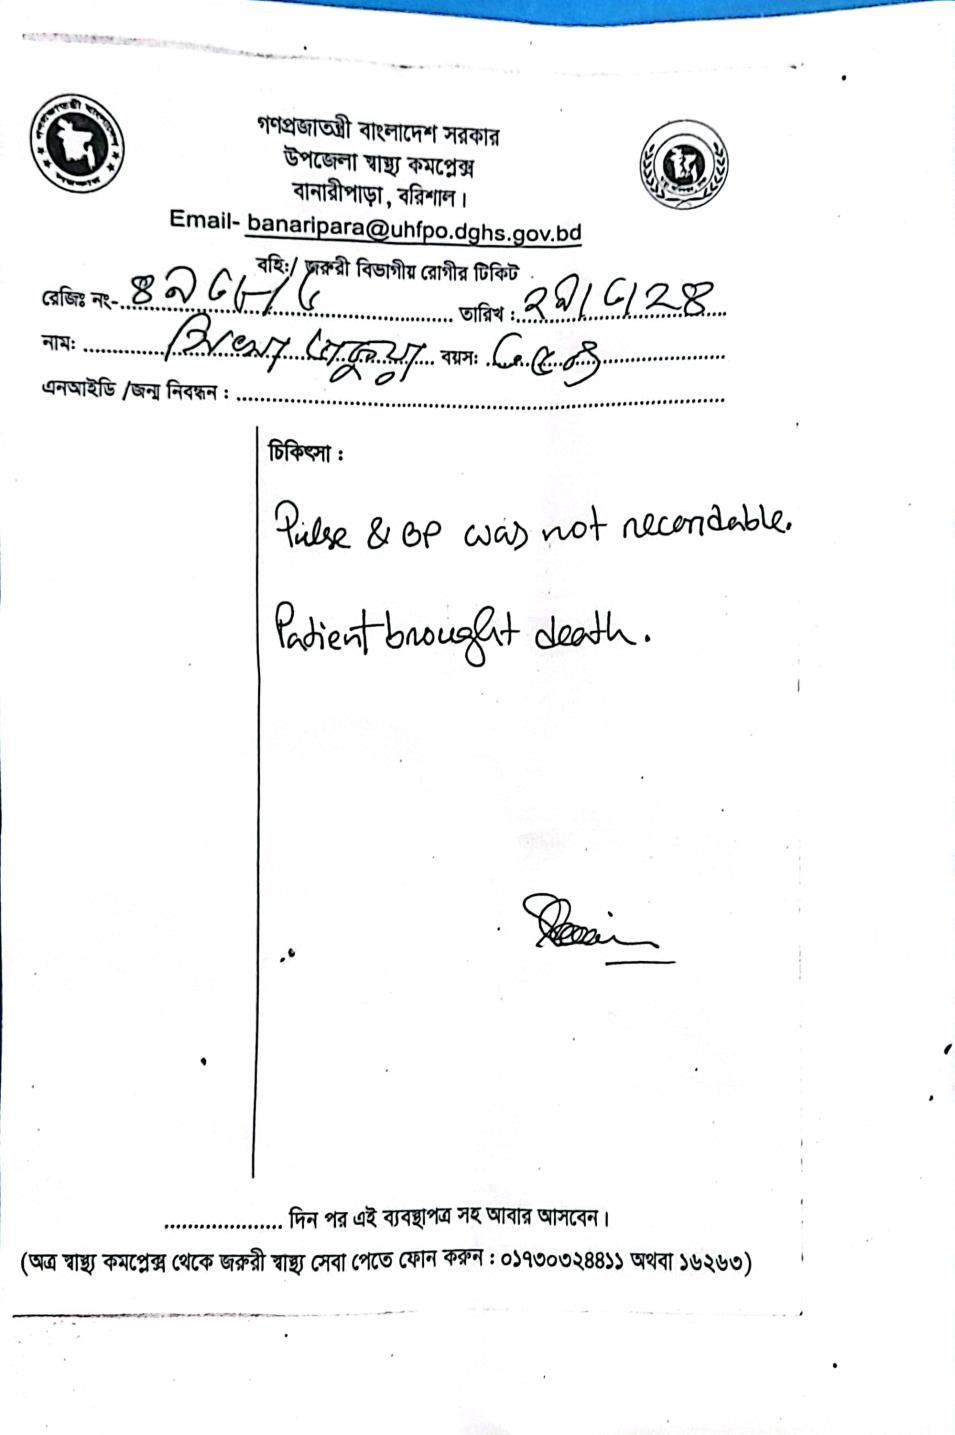 গণপ্রজাতন্ত্রী বাংলাদেশ সরকার
উপজেলা স্বাস্থ্য কমপ্লেক্স
বানারীপাড়া, বরিশাল।
Email- banaripara@uhfpo.dghs.gov.bd
বহিঃ/ জরুরী বিভাগীয় রোগীর টিকিট
রেজিঃ নং-
তারিখ :
নামঃ
বয়স:
এনআইডি /জন্ম নিবন্ধন :
চিকিৎসা :
Pulse & BP was not recordable.
Patient brought death.
দিন পর এই ব্যবস্থাপত্র সহ আবার আসবেন।
(অত্র স্বাস্থ্য কমপ্লেক্স থেকে জরুরী স্বাস্থ্য সেবা পেতে ফোন করুন : ০১৭৩০৩২৪৪১১ অথবা ১৬২৬৩)